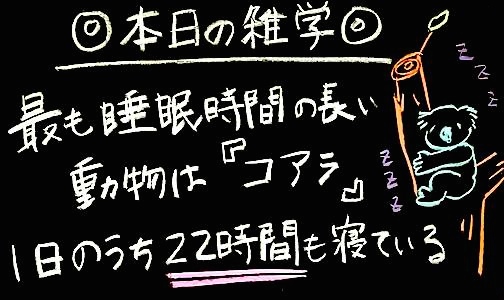 ◎本日の雑学◎
最も睡眠時間の長い
動物は『コアラ』
1日のうち22時間も寝ている
z z z
z z z